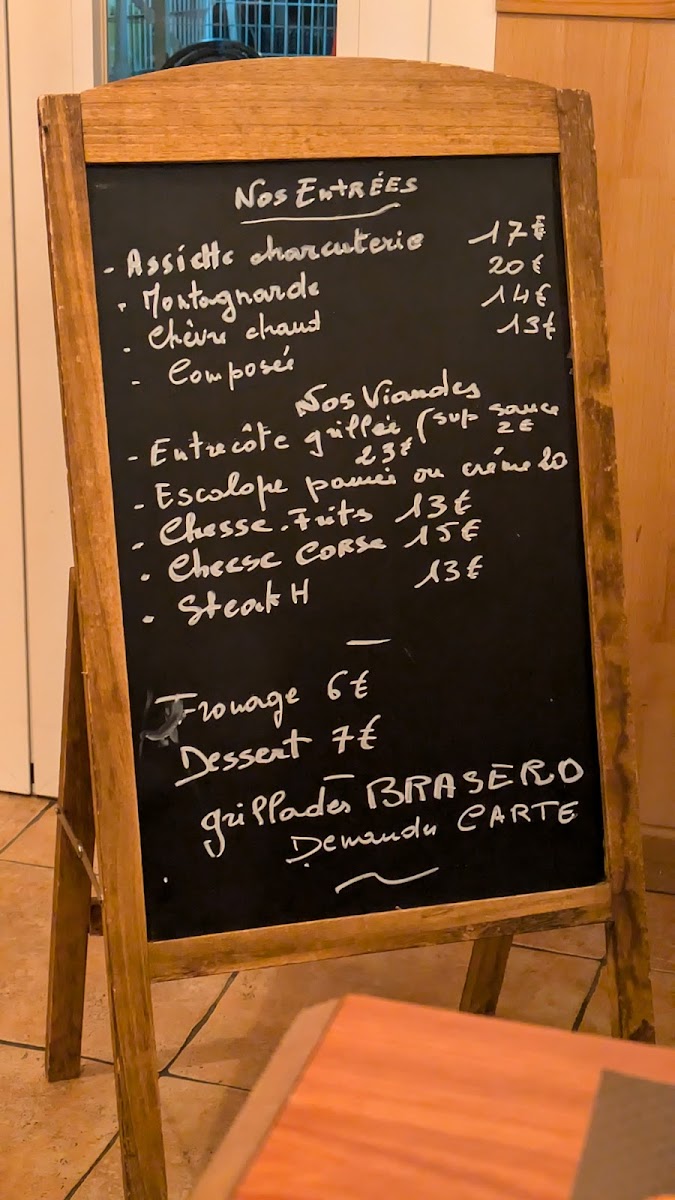 Nos Entrées
- Assiette charcuterie 17€
- Montagnarde 20€
- Chèvre chaud 14€
- Composée 13€
Nos Viandes
- Entrecôte grillée (sup sauce 2€
23€
- Escalope panée ou crème 20
- Chesse.Frits 13€
- Cheese Corse 15€
- Steak H 13€
Fromage 6€
Dessert 7€
grillades BRASERO
Demander CARTE